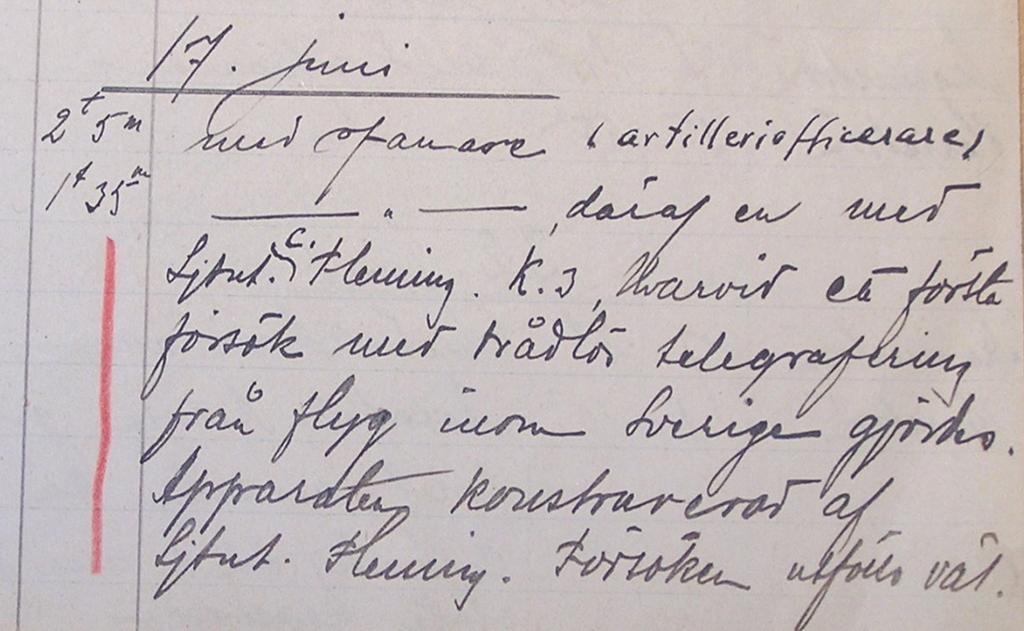 17. juni
2t 5m med spanare (artilleriofficerare)
1t 35m — " — , däraf en med
Ljtnt. C. Fleming. K.3, Hvarvid ett första
försök med trådlös telegrafering
från flyg inom Sverige gjordes.
Apparaten konstruerad af
Ljtnt. Fleming. Försöken utföllo väl.